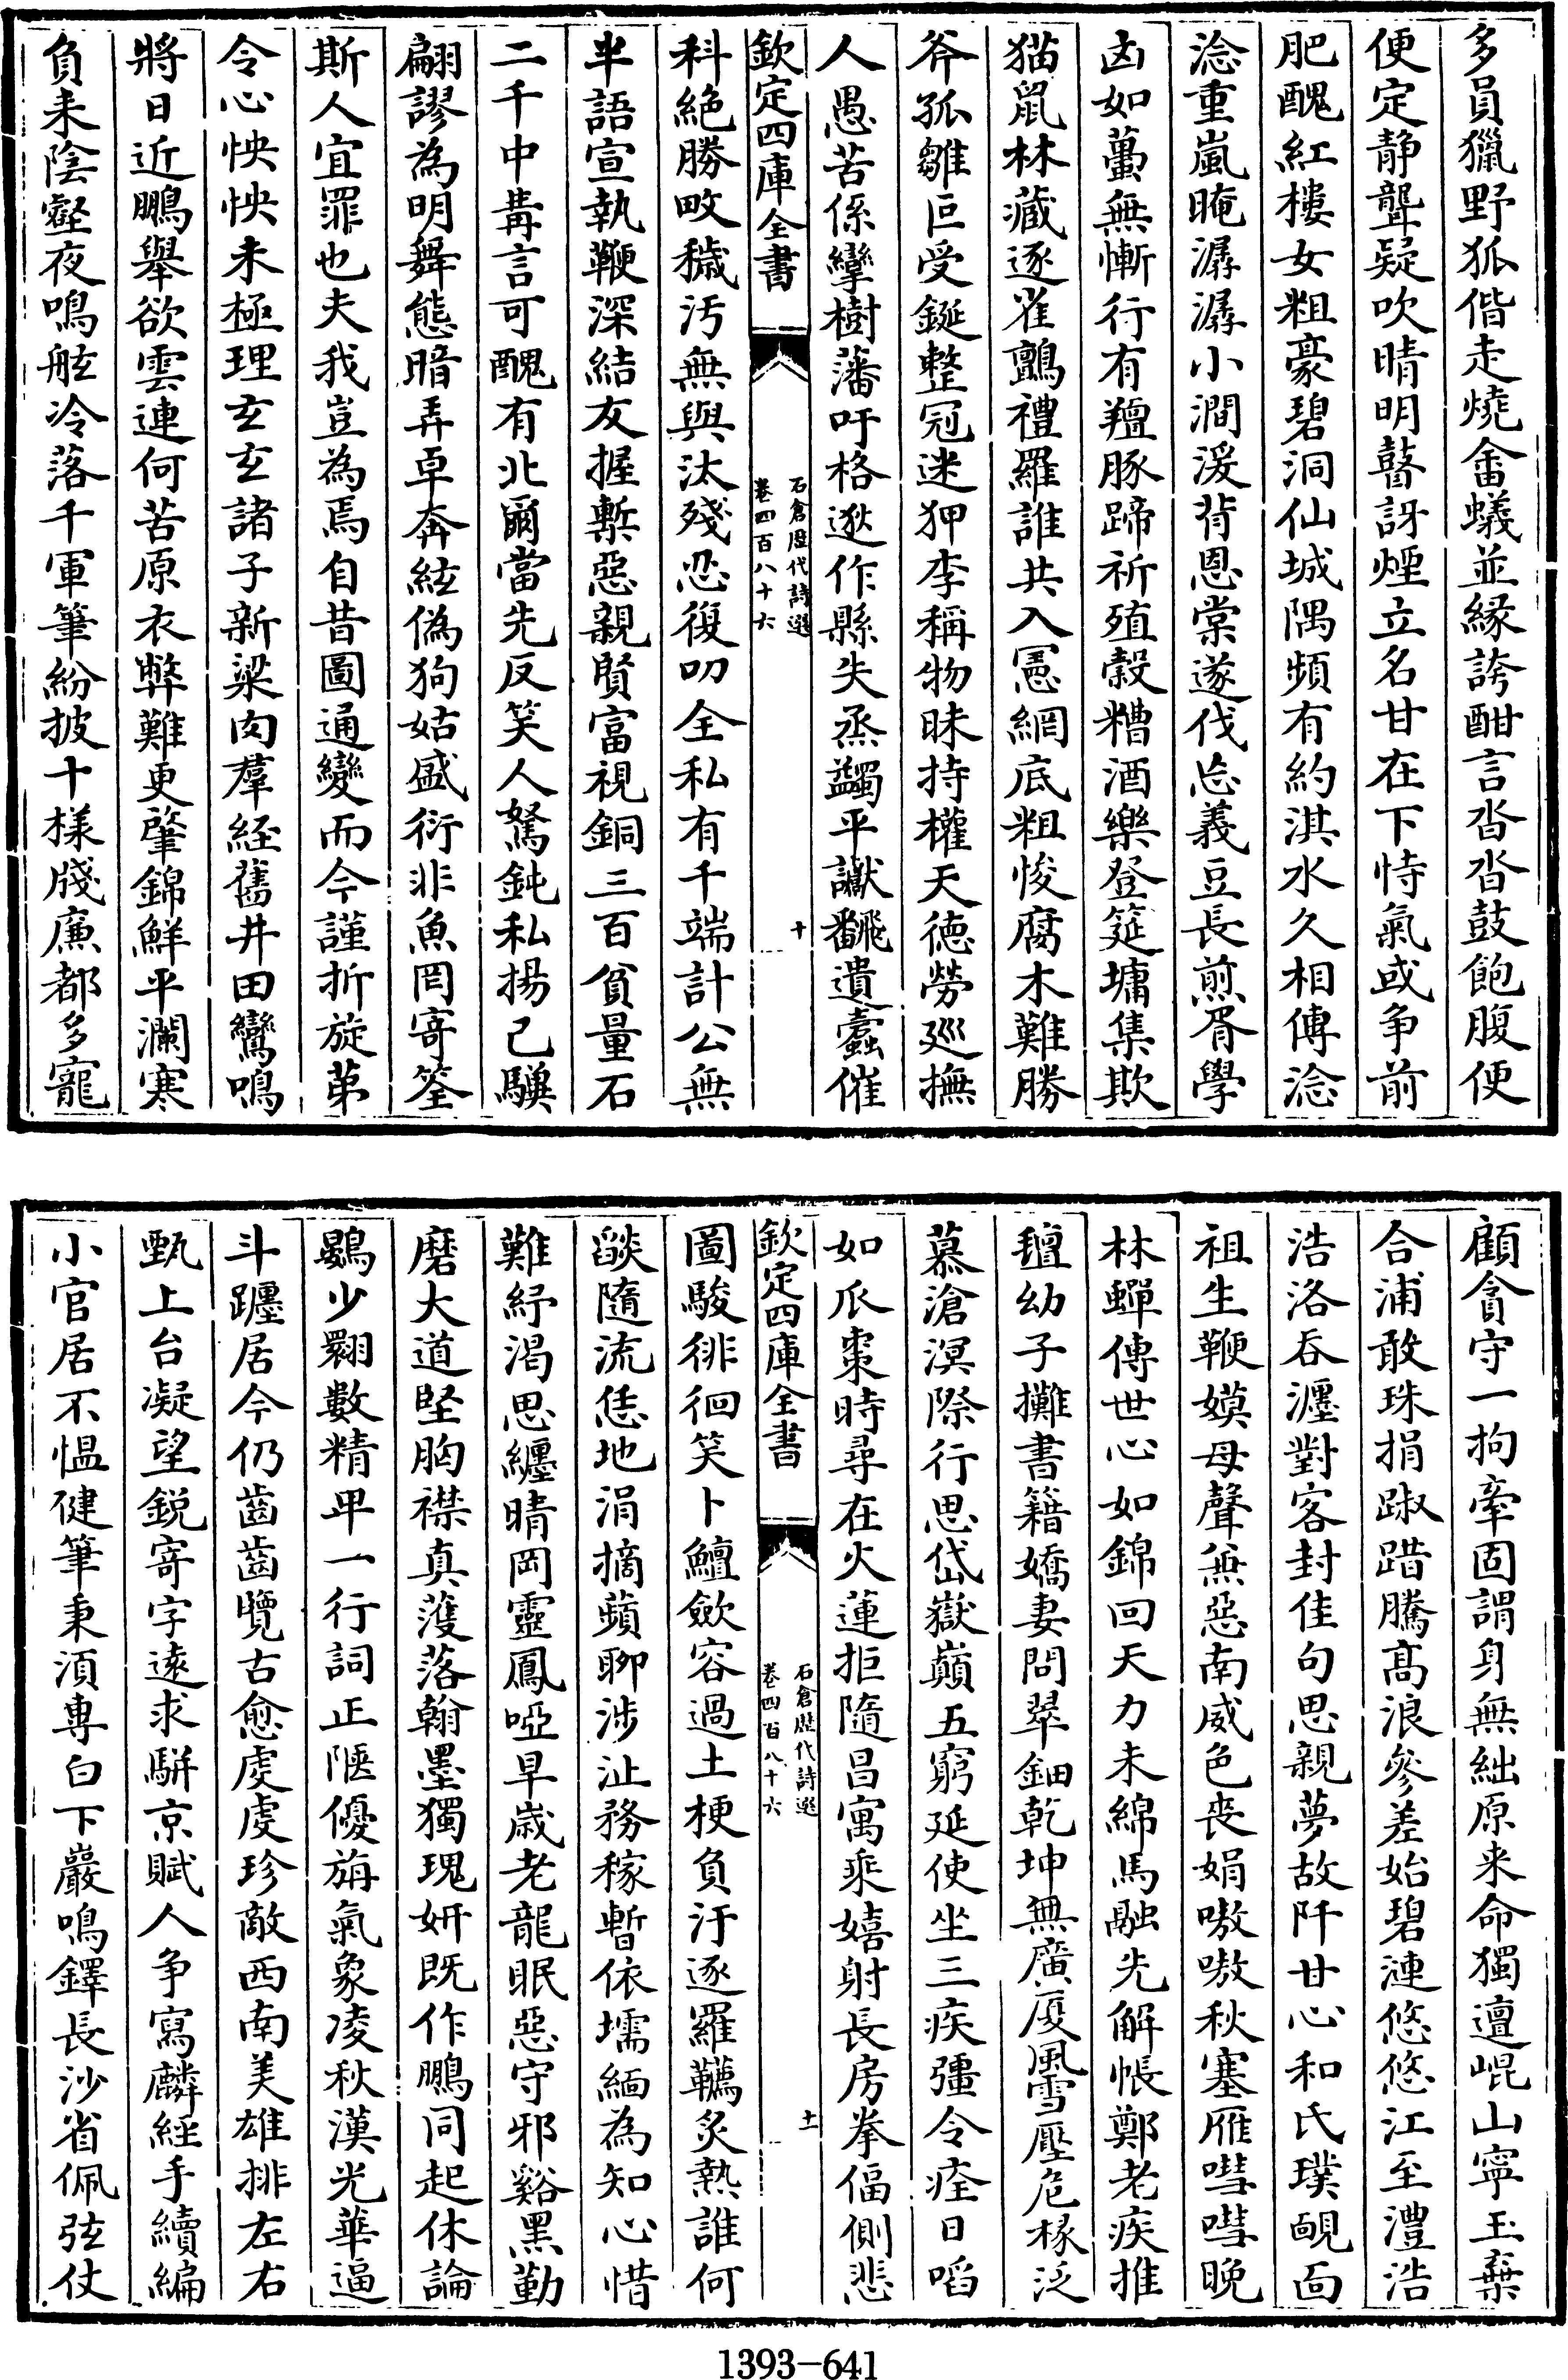 多員獵野狐偕走燒畬蟻並緣誇酣言沓沓鼓飽腹便
便定静聾疑吹晴明瞽訝煙立名甘在下恃氣或争前
肥醜紅樓女粗豪碧洞仙城隅頻有約淇水久相傳淰
淰重嵐晻潺潺小澗湲背恩棠遂伐忘義豆長煎胥學
凶如蠆無慚行有羶豚蹄祈殖穀糟酒樂登筵墉集欺
猫鼠林藏逐雀鸇禮羅誰共入罳網底粗悛腐木難勝
斧孤雛叵受鋋整冠迷狎李稱物昧持權天德勞廵撫
人愚苦係攣樹藩吁格逖作縣失烝蠲平讞飜遺蠧催
欽定四庫全書
石倉歷代詩選
卷四百八十六
十
科絕勝畋穢汚無與汰殘忍復叨全私有千端計公無
半語宣執鞭深結友握槧惡親賢富視銅三百貧量石
二千中冓言可醜有北爾當先反笑人駑鈍私揚己驥
翩謬為明舞態暗弄卓奔絃偽狗姑盛衍非魚罔寄筌
斯人宜罪也夫我豈為焉自昔圖通變而今謹折旋第
令心怏怏未極理玄玄諸子新粱肉羣經舊井田鸞鳴
將日近鵬舉欲雲連何苦原衣弊難更肇錦鮮平瀾寒
負耒陰壑夜鳴舷冷落千軍筆紛披十様牋㢘都多寵
顧貪守一拘牽固謂身無絀原来命獨邅崐山寜玉棄
合浦敢珠捐踧踖騰髙浪參差始碧漣悠悠江至澧浩
浩洛吞瀍對客封佳句思親夢故阡甘心和氏璞靦面
祖生鞭嫫母聲無惡南威色丧娟嗷嗷秋塞雁嘒嘒晚
林蟬傳世心如錦回天力未綿馬融先解帳鄭老疾推
氊幼子攤書籍嬌妻問翠鈿乾坤無廣厦風雪壓危椽泛
慕滄溟際行思岱嶽巔五窮延使坐三疾彊令痊日㗖
如爪棗時尋在火蓮拒隨昌寓乘嬉射長房拳偪側悲
欽定四庫全書
石倉歷代詩選
卷四百八十六
十一
圖駿徘徊笑卜鱣歛容過土梗負汙逐羅韉炙熱誰何
燄隨流恁地涓摘蘋聊涉沚務稼暫依壖緬為知心惜
難紓渴思纏晴岡靈鳳啞早歳老龍眠惡守邪谿黑勤
磨大道堅胸襟真濩落翰墨獨瑰妍既作鵬同起休論
鷃少翾數精甲一行詞正陿優旃氣象凌秋漢光華逼
斗躔居今仍齒齒覽古愈虔虔珍敵西南美雄排左右
甄上台凝望鋭寄字遠求駢京賦人争寫麟經手續編
小官居不愠健筆秉湏專白下巖鳴鐸長沙省佩弦仗
1393-641